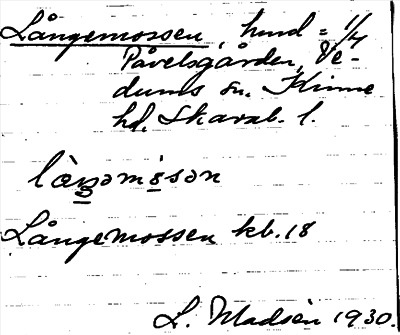 Långemossen, hmd = 1/4
Påvelsgården, Ve-
dums sn. Kinne
hd. Skarab. l.
Långemossen kb. 18
L. Madsén 1930.